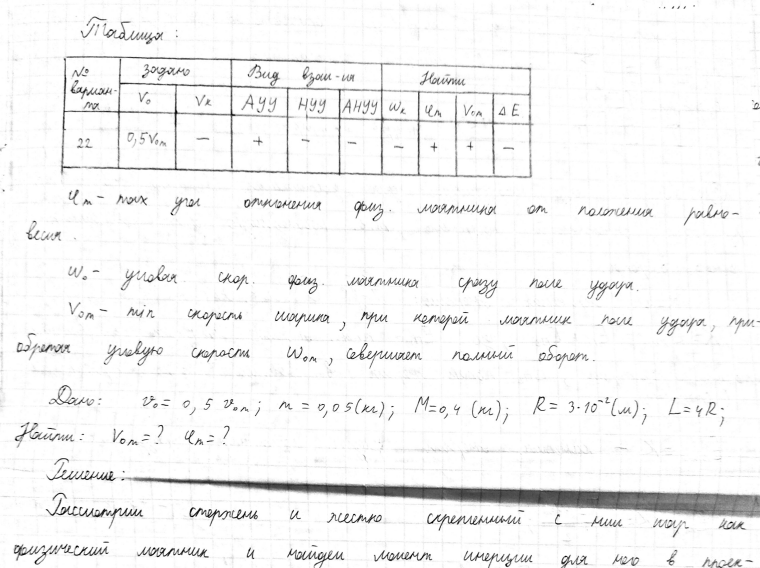 Таблица:
№ варианта задано Вид взаи-ия Найти
V₀ Vк АУУ НУУ АНУУ ωк φm V₀m ΔE
22 0,5V₀m — + — — — + + —
φm - max угол отклонения физ. маятника от положения равно-
весия.
ω₀ - угловая скор. физ. маятника сразу после удара.
V₀m - min скорость шарика, при которой маятник после удара, при-
обретая угловую скорость ω₀m, совершает полный оборот.
Дано: v₀ = 0,5 v₀m; m = 0,05(кг); M = 0,4 (кг); R = 3·10⁻²(м); L = 4R;
Найти: V₀m = ? φm = ?
Решение:
Рассмотрим стержень и жестко скрепленный с ним шар как
физический маятник и найдем момент инерции для него в проек-